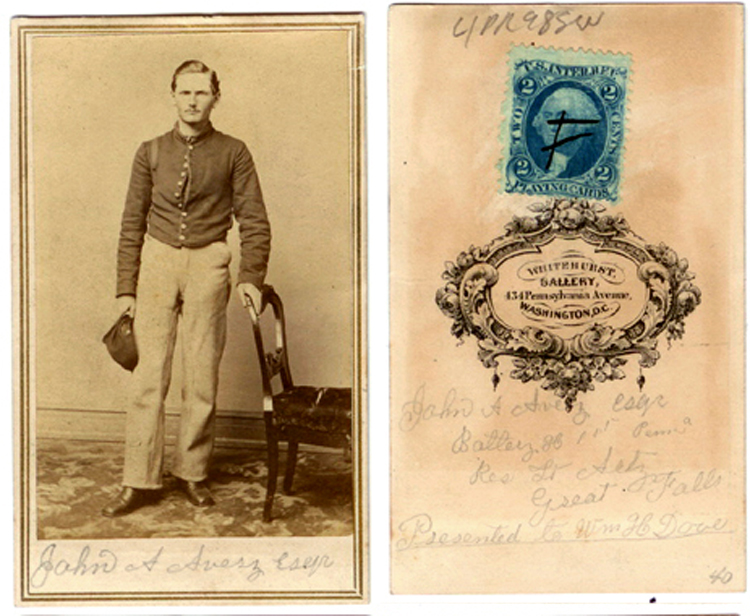 John A Avery Esqr
4PR98SW
U.S. INTER. REV.
2 2
TWO CENTS
2 2
PLAYING CARDS
WHITEHURST
GALLERY,
434 Pennsylvania Avenue,
WASHINGTON, D.C.
John A Avery Esqr
Battery 1st Penna
Res Lt Arty
Great Falls
Presented to Wm H Dove
40